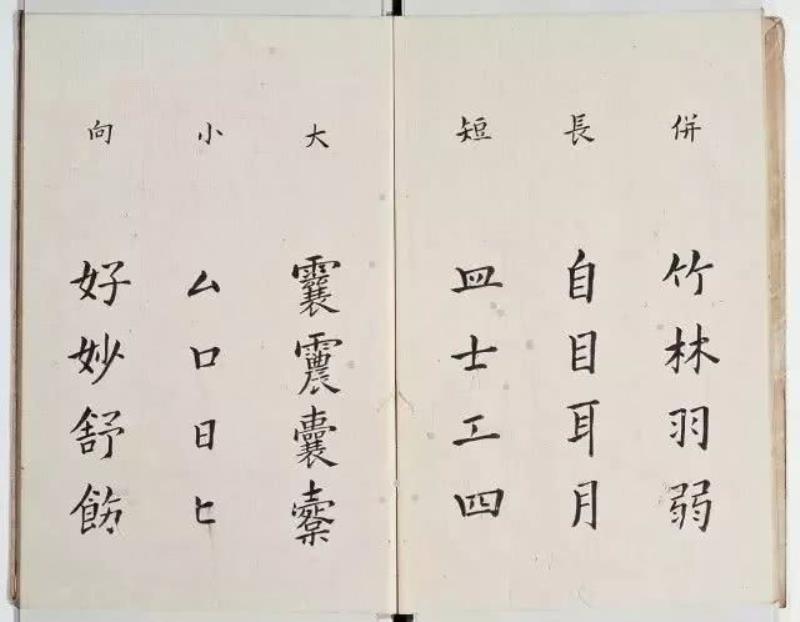 併 竹林羽弱
長 自目耳月
短 皿士工四
大 囊
小 厶口日匕
向 好妙舒